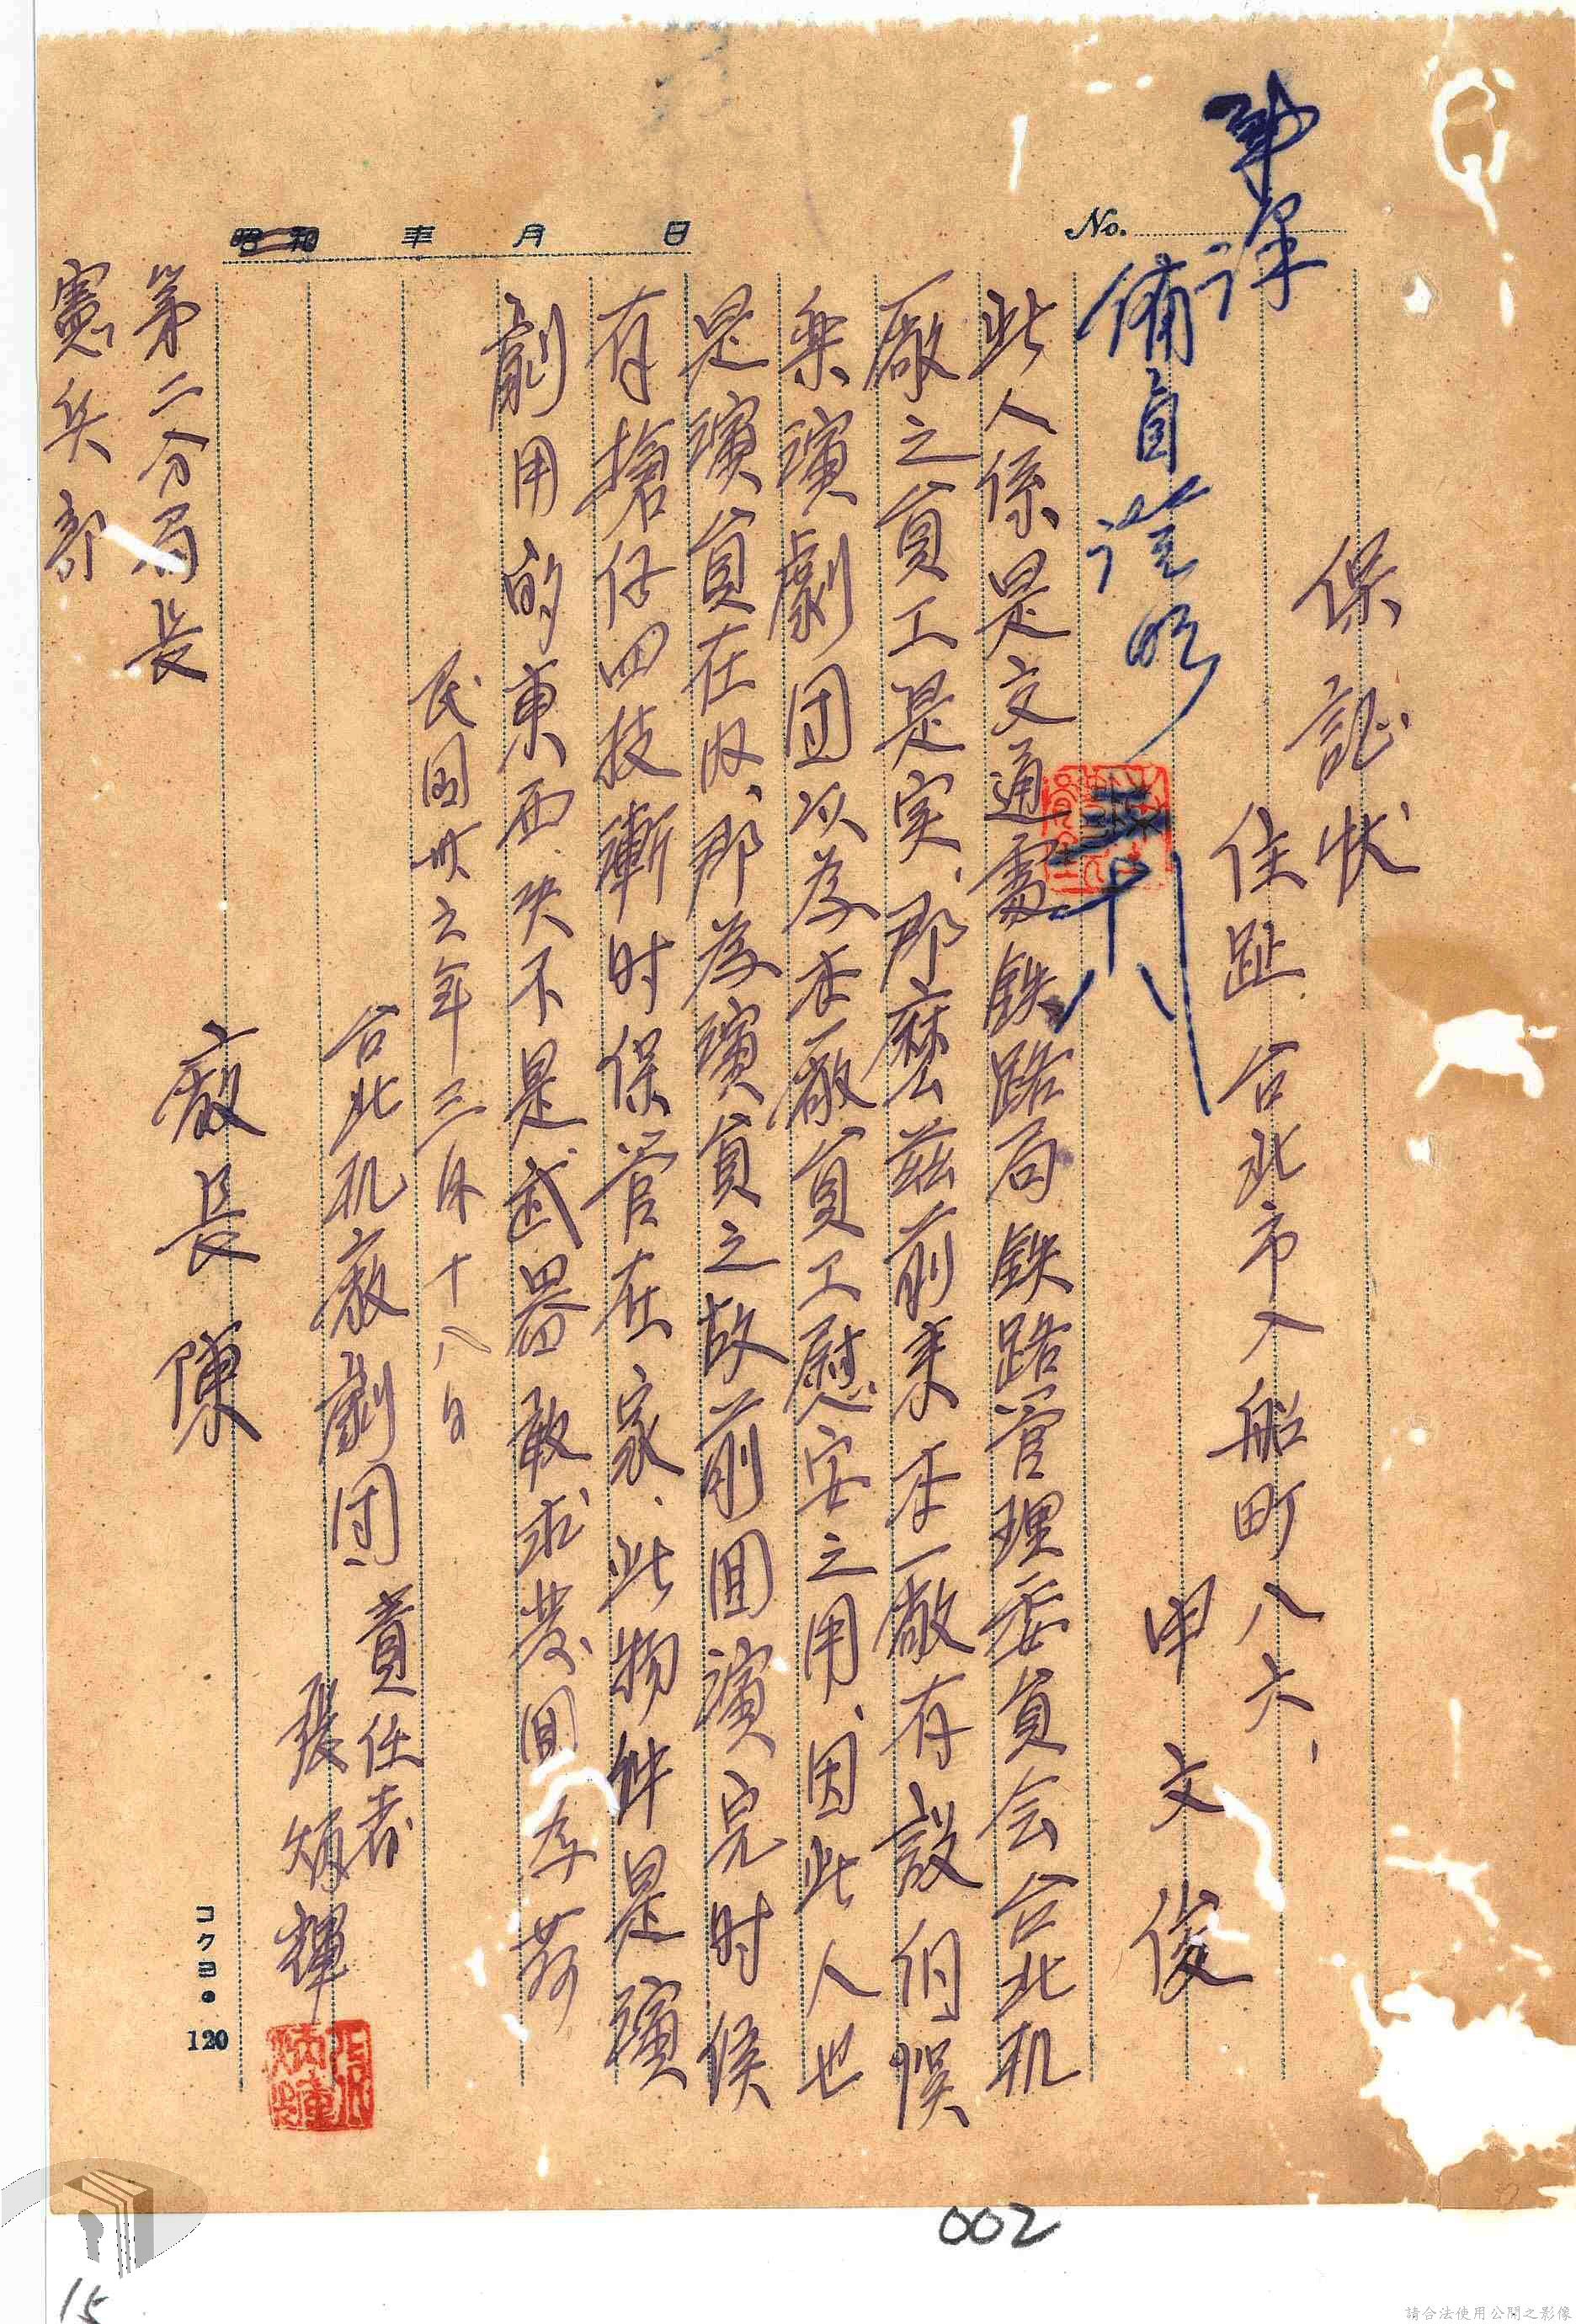 保証状
住趾 台北市入船町八六、
申文俊
此人係是交通處鉄路局鉄路管理委員会台北机
廠之員工是实、那麼茲前来本廠有設们悞
楽演劇团以為本廠員工慰安之用、因此人也
是演員在内、那為演員之故前回演完时候
有搶仔四枝暫时保管在家、此物件是演
劇用的東西、决不是武器敢求発回為荷
民国卅六年三月十八日
台北机廠劇団、責任者
張炳輝
廠長 陳
第二分局長
憲兵部
備員證明
No.
昭和 年 月 日
コクヨ • 120
002
15
請合法使用公開之影像